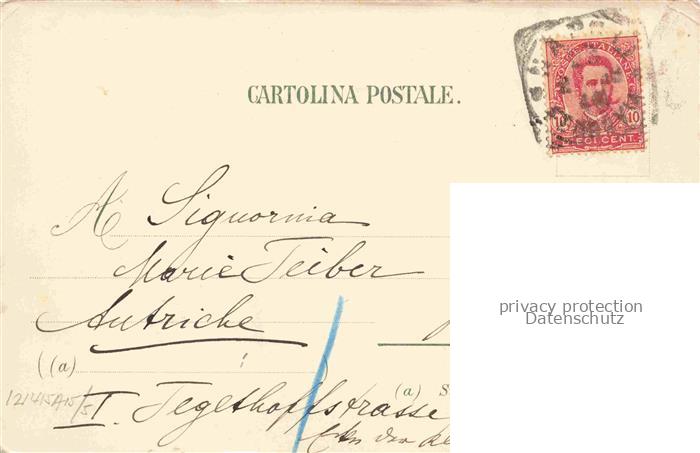 CARTOLINA POSTALE.
POSTE ITALIANE
10 10
CENT.
A Signorina
Marie Teiber
Autriche
((a)
(a) S
I. Tegethoffstrasse
privacy protection
Datenschutz